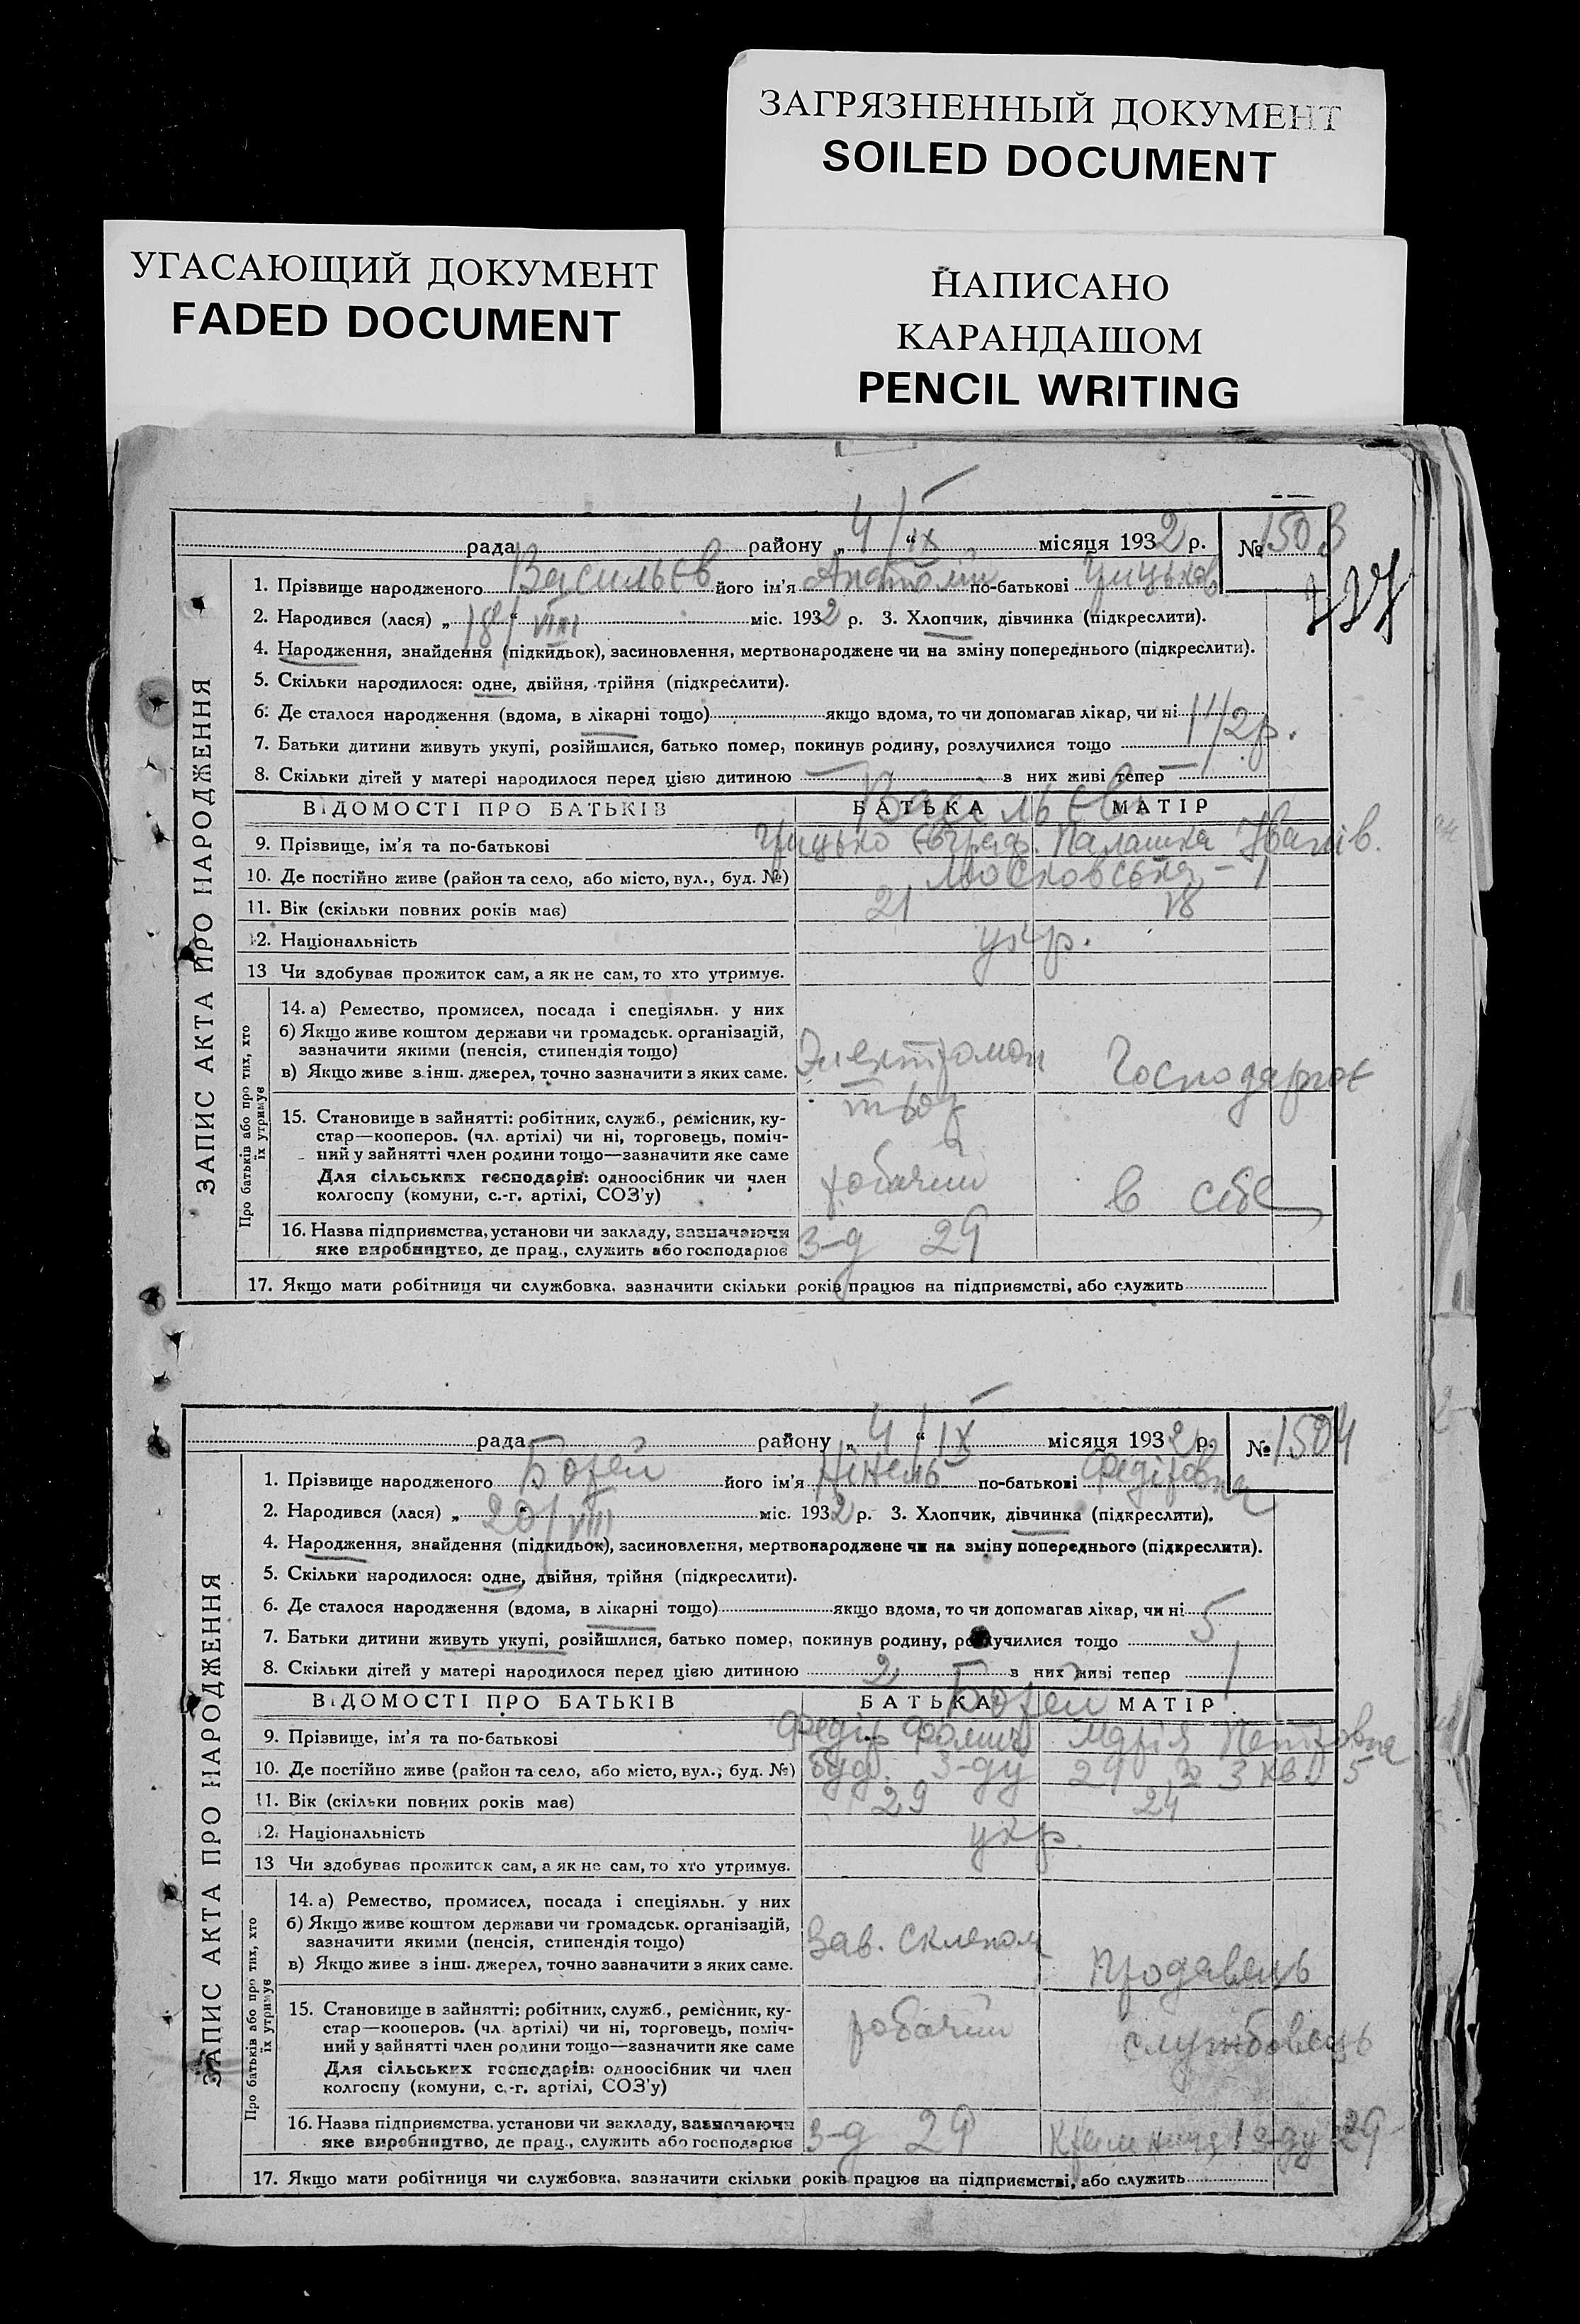 ЗАГРЯЗНЕННЫЙ ДОКУМЕНТ
SOILED DOCUMENT
УГАСАЮЩИЙ ДОКУМЕНТ
FADED DOCUMENT
НАПИСАНО
КАРАНДАШОМ
PENCIL WRITING
рада района району „ 4/IX “ місяця 1932 р. № 1503
327
ЗАПИС АКТА ПРО НАРОДЖЕННЯ
1. Прізвище народженого Васильєв його ім'я Анатолій по-батькові
2. Народився (лася) „ 18/VIII “ міс. 1932 р. 3. Хлопчик, дівчинка (підкреслити).
4. Народження, знайдення (підкидьок), засиновлення, мертвонароджене чи на зміну попереднього (підкреслити).
5. Скільки народилося: одне, двійня, трійня (підкреслити).
6. Де сталося народження (вдома, в лікарні тощо) якщо вдома, то чи допомагав лікар, чи ні
7. Батьки дитини живуть укупі, розійшлися, батько помер, покинув родину, розлучилися тощо 1 1/2 р.
8. Скільки дітей у матері народилося перед цією дитиною — з них живі тепер —
ВІДОМОСТІ ПРО БАТЬКІВ БАТЬКА МАТІР
Васильєви
9. Прізвище, ім'я та по-батькові Палашка Іванів.
10. Де постійно живе (район та село, або місто, вул., буд. №) Московська – 1
11. Вік (скільки повних років має) 21 18
12. Національність укр.
13 Чи здобуває прожиток сам, а як не сам, то хто утримує.
Про батьків або про тих, хто їх утримує
14. а) Ремество, промисел, посада і спеціяльн. у них
б) Якщо живе коштом держави чи громадськ. організацій,
зазначити якими (пенсія, стипендія тощо)
в) Якщо живе з інш. джерел, точно зазначити з яких саме.
Электромон Господарює
тьор
15. Становище в зайнятті: робітник, служб., ремісник, ку-
стар—кооперов. (чл. артілі) чи ні, торговець, поміч-
ний у зайнятті член родини тощо—зазначити яке саме
Для сільських господарів: одноосібник чи член
колгоспу (комуни, с.-г. артілі, СОЗ'у)
робочий в себе
16. Назва підприємства, установи чи закладу, зазначаючи
яке виробництво, де прац., служить або господарює
З-д 29
17. Якщо мати робітниця чи службовка, зазначити скільки років працює на підприємстві, або служить
рада району „ 4/IX “ місяця 1932 р. № 1504
ЗАПИС АКТА ПРО НАРОДЖЕННЯ
1. Прізвище народженого його ім'я Нінель по-батькові Федіровна
2. Народився (лася) „ 20/VIII “ міс. 1932 р. 3. Хлопчик, дівчинка (підкреслити).
4. Народження, знайдення (підкидьок), засиновлення, мертвонароджене чи на зміну попереднього (підкреслити).
5. Скільки народилося: одне, двійня, трійня (підкреслити).
6. Де сталося народження (вдома, в лікарні тощо) якщо вдома, то чи допомагав лікар, чи ні
7. Батьки дитини живуть укупі, розійшлися, батько помер, покинув родину, розлучилися тощо 5
8. Скільки дітей у матері народилося перед цією дитиною 2 з них живі тепер 1
ВІДОМОСТІ ПРО БАТЬКІВ БАТЬКА МАТІР
9. Прізвище, ім'я та по-батькові Федір Фомич Марія Петровна
10. Де постійно живе (район та село, або місто, вул., буд. №) буд. З-ду 29 кв. 5
11. Вік (скільки повних років має) 29 24
12. Національність укр.
13 Чи здобуває прожиток сам, а як не сам, то хто утримує.
Про батьків або про тих, хто їх утримує
14. а) Ремество, промисел, посада і спеціяльн. у них
б) Якщо живе коштом держави чи громадськ. організацій,
зазначити якими (пенсія, стипендія тощо)
в) Якщо живе з інш. джерел, точно зазначити з яких саме.
Зав. складом продавець
15. Становище в зайнятті: робітник, служб., ремісник, ку-
стар—кооперов. (чл. артілі) чи ні, торговець, поміч-
ний у зайнятті член родини тощо—зазначити яке саме
Для сільських господарів: одноосібник чи член
колгоспу (комуни, с.-г. артілі, СОЗ'у)
робочий службовець
16. Назва підприємства, установи чи закладу, зазначаючи
яке виробництво, де прац., служить або господарює
З-д 29 Крамниця З-ду 29
17. Якщо мати робітниця чи службовка, зазначити скільки років працює на підприємстві, або служить